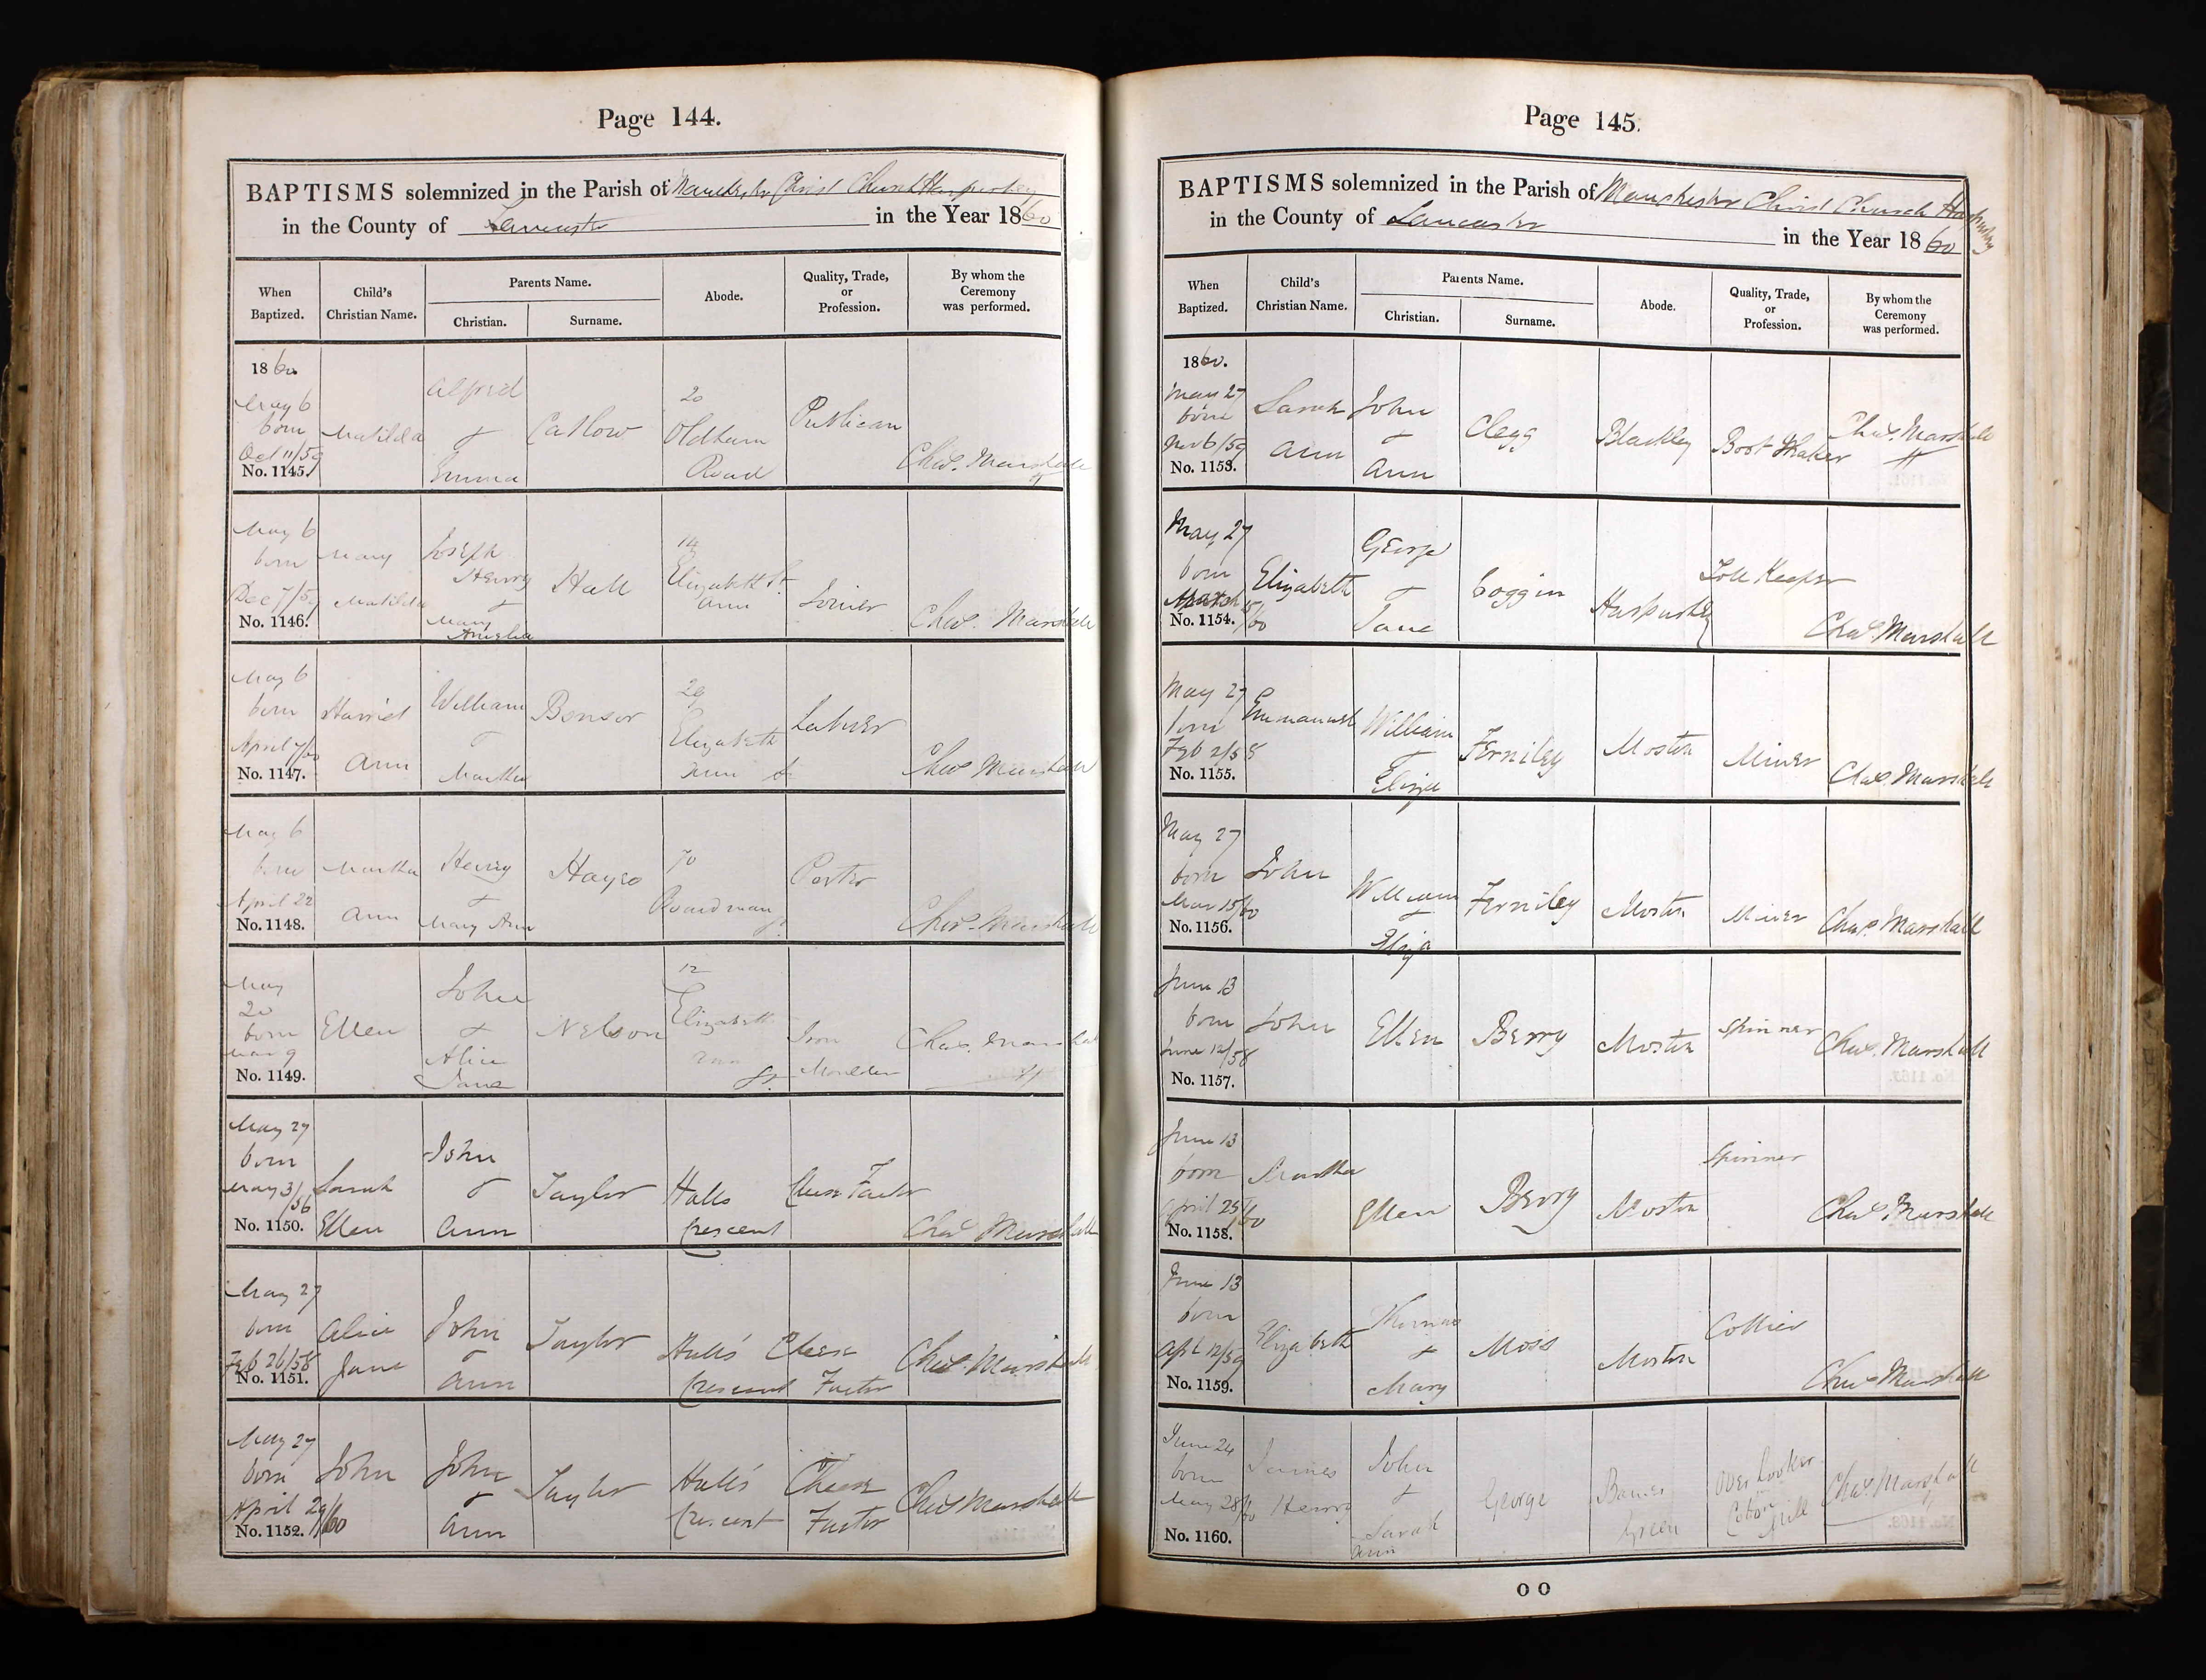 Page 144.
BAPTISMS solemnized in the Parish of Manchester Christ Church Harpurhey
in the County of Lancaster in the Year 1860
When Baptized. Child's Christian Name. Parents Name. Christian. Surname. Abode. Quality, Trade, or Profession. By whom the Ceremony was performed.
1860.
May 6 born Oct 11/59 No. 1145. Matilda Alfred & Emma Catlow 20 Oldham Road Publican Chas. Marshall
May 6 born Dec 7/59 No. 1146. Mary Matilda Joseph Henry & Mary Amelia Hall 14 Elizabeth St. Ann Joiner Chas. Marshall
May 6 born April 7/60 No. 1147. Harriet Ann William & Martha Bonsor 29 Elizabeth Ann St Labrer Chas Marshall
May 6 born April 22 No. 1148. Martha Ann Henry & Mary Ann Hayes 70 Boardman St. Porter Chas. Marshall
May 20 born Mar 9 No. 1149. Ellen John & Alice Jane Nelson 12 Elizabeth Ann St. Iron Moulder Chas. Marshall
May 27 born May 31/56 No. 1150. Sarah Ellen John & Ann Taylor Halls Crescent Cheese Factor Chas Marshall
May 27 born Feb 26/58 No. 1151. Alice Jane John & Ann Taylor Hall's Crescent Cheese Factor Chas. Marshall
May 27 born April 29/60 No. 1152. John John & Ann Taylor Hall's Crescent Cheese Factor Chas Marshall
Page 145.
BAPTISMS solemnized in the Parish of Manchester Christ Church Harpurhey
in the County of Lancaster in the Year 1860
When Baptized. Child's Christian Name. Parents Name. Christian. Surname. Abode. Quality, Trade, or Profession. By whom the Ceremony was performed.
1860.
May 27 born Nov 6/59 No. 1153. Sarah Ann John & Ann Clegg Blackley Boot Maker Chas. Marshall
May 27 born March /60 No. 1154. Elizabeth George & Jane Coggin Harpurhey Toll Keeper Chas. Marshall
May 27 born Feb 2/58 No. 1155. Emmanuel William & Eliza Ferniley Moston Miner Chas. Marshall
May 27 born Mar 15/60 No. 1156. John William & Eliza Ferniley Moston Miner Chas. Marshall
June 13 born June 12/58 No. 1157. John Ellen Berry Moston Spinner Chas. Marshall
June 13 born April 25/60 No. 1158. Martha Ellen Berry Moston Spinner Chas. Marshall
June 13 born Apl 12/59 No. 1159. Elizabeth Thomas & Mary Moss Moston Collier Chas Marshall
June 24 born May 28/60 No. 1160. James Henry John & Sarah Ann George Barnes Green Over Looker in Cotton Mill Chas. Marshall
O O